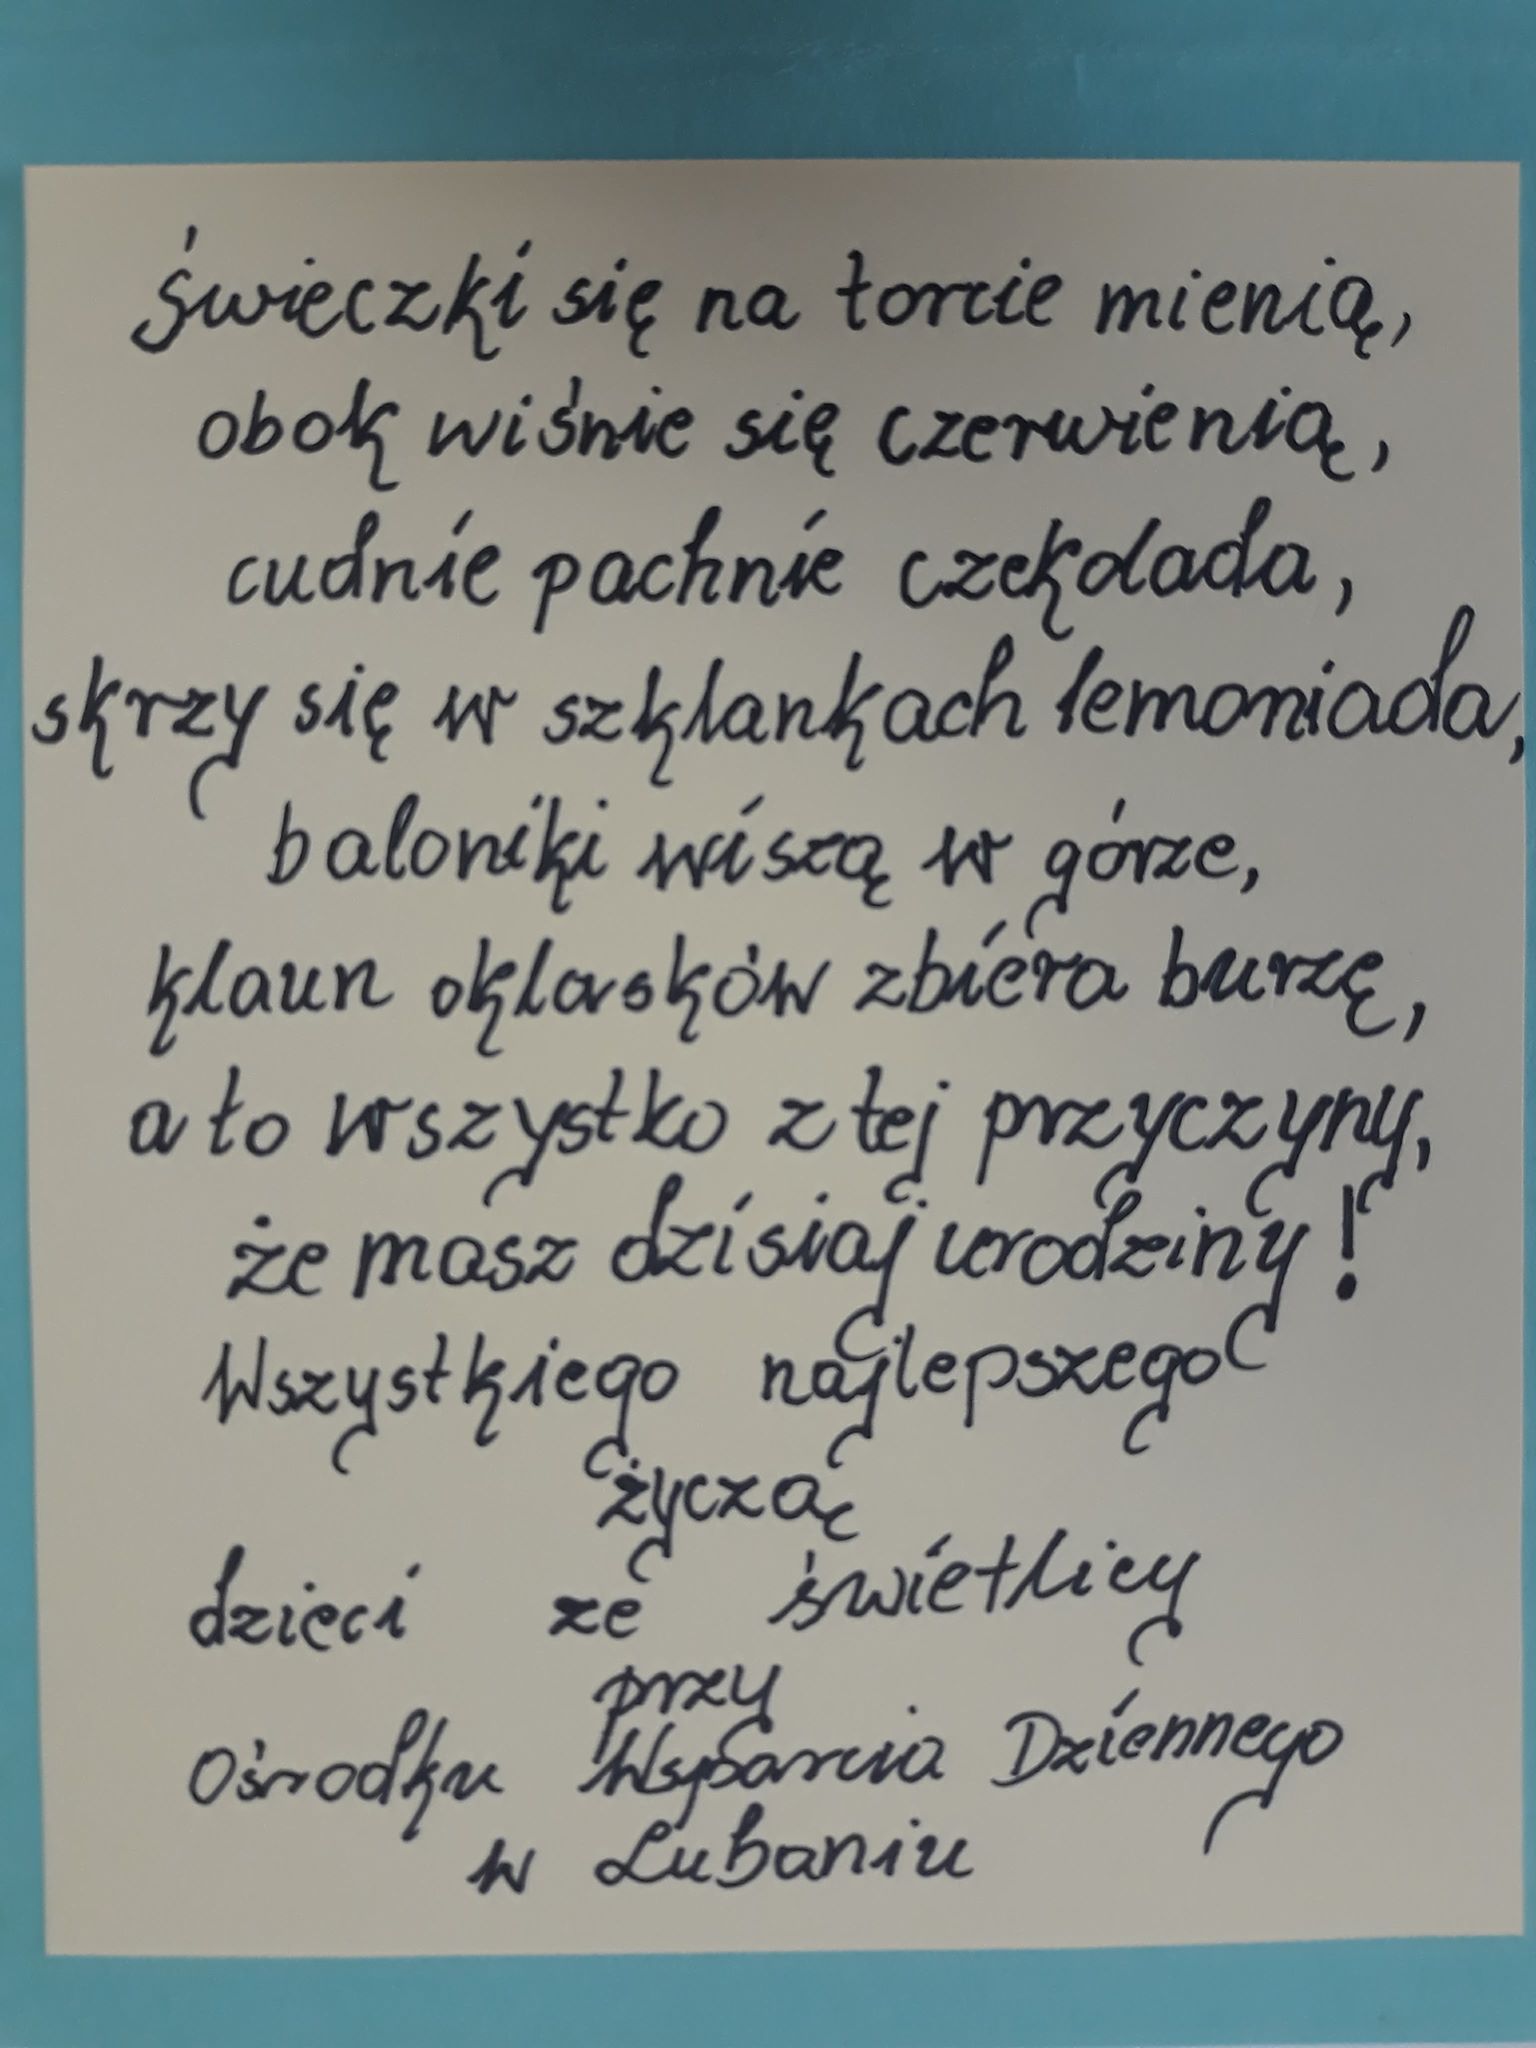 Świeczki się na torcie mienią,
obok wiśnie się czerwienią,
cudnie pachnie czekolada,
skrzy się w szklankach lemoniada,
baloniki wiszą w górze,
klaun oklasków zbiera burzę,
a to wszystko z tej przyczyny,
że masz dzisiaj urodziny!
Wszystkiego najlepszego
życzą
dzieci ze świetlicy
przy
Ośrodku Wsparcia Dziennego
w Lubaniu